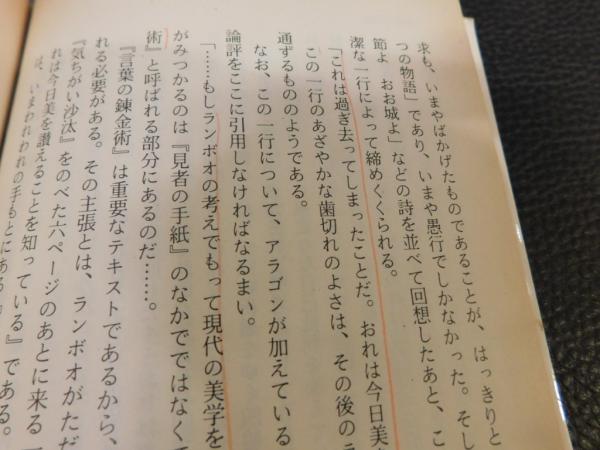 求も、いまやばかげたものであることが、はっきりと
つの物語」であり、いまや愚行でしかなかった。そし
節よ　おお城よ」などの詩を並べて回想したあと、こ
潔な一行によって締めくくられる。
「これは過ぎ去ってしまったことだ。おれは今日美
この一行のあざやかな歯切れのよさは、その後のラ
通ずるもののようである。
なお、この一行について、アラゴンが加えている
論評をここに引用しなければなるまい。
「……もしランボオの考えでもって現代の美学を
がみつかるのは『見者の手紙』のなかでではなくて
術』と呼ばれる部分にあるのだ……。
『言葉の錬金術』は重要なテキストであるから、
れる必要がある。その主張とは、ランボオがただ
『気ちがい沙汰』をのべた六ページのあとに来る一
れは今日美を讃えることを知っている』である。
は、いまわれわれの手もとにある